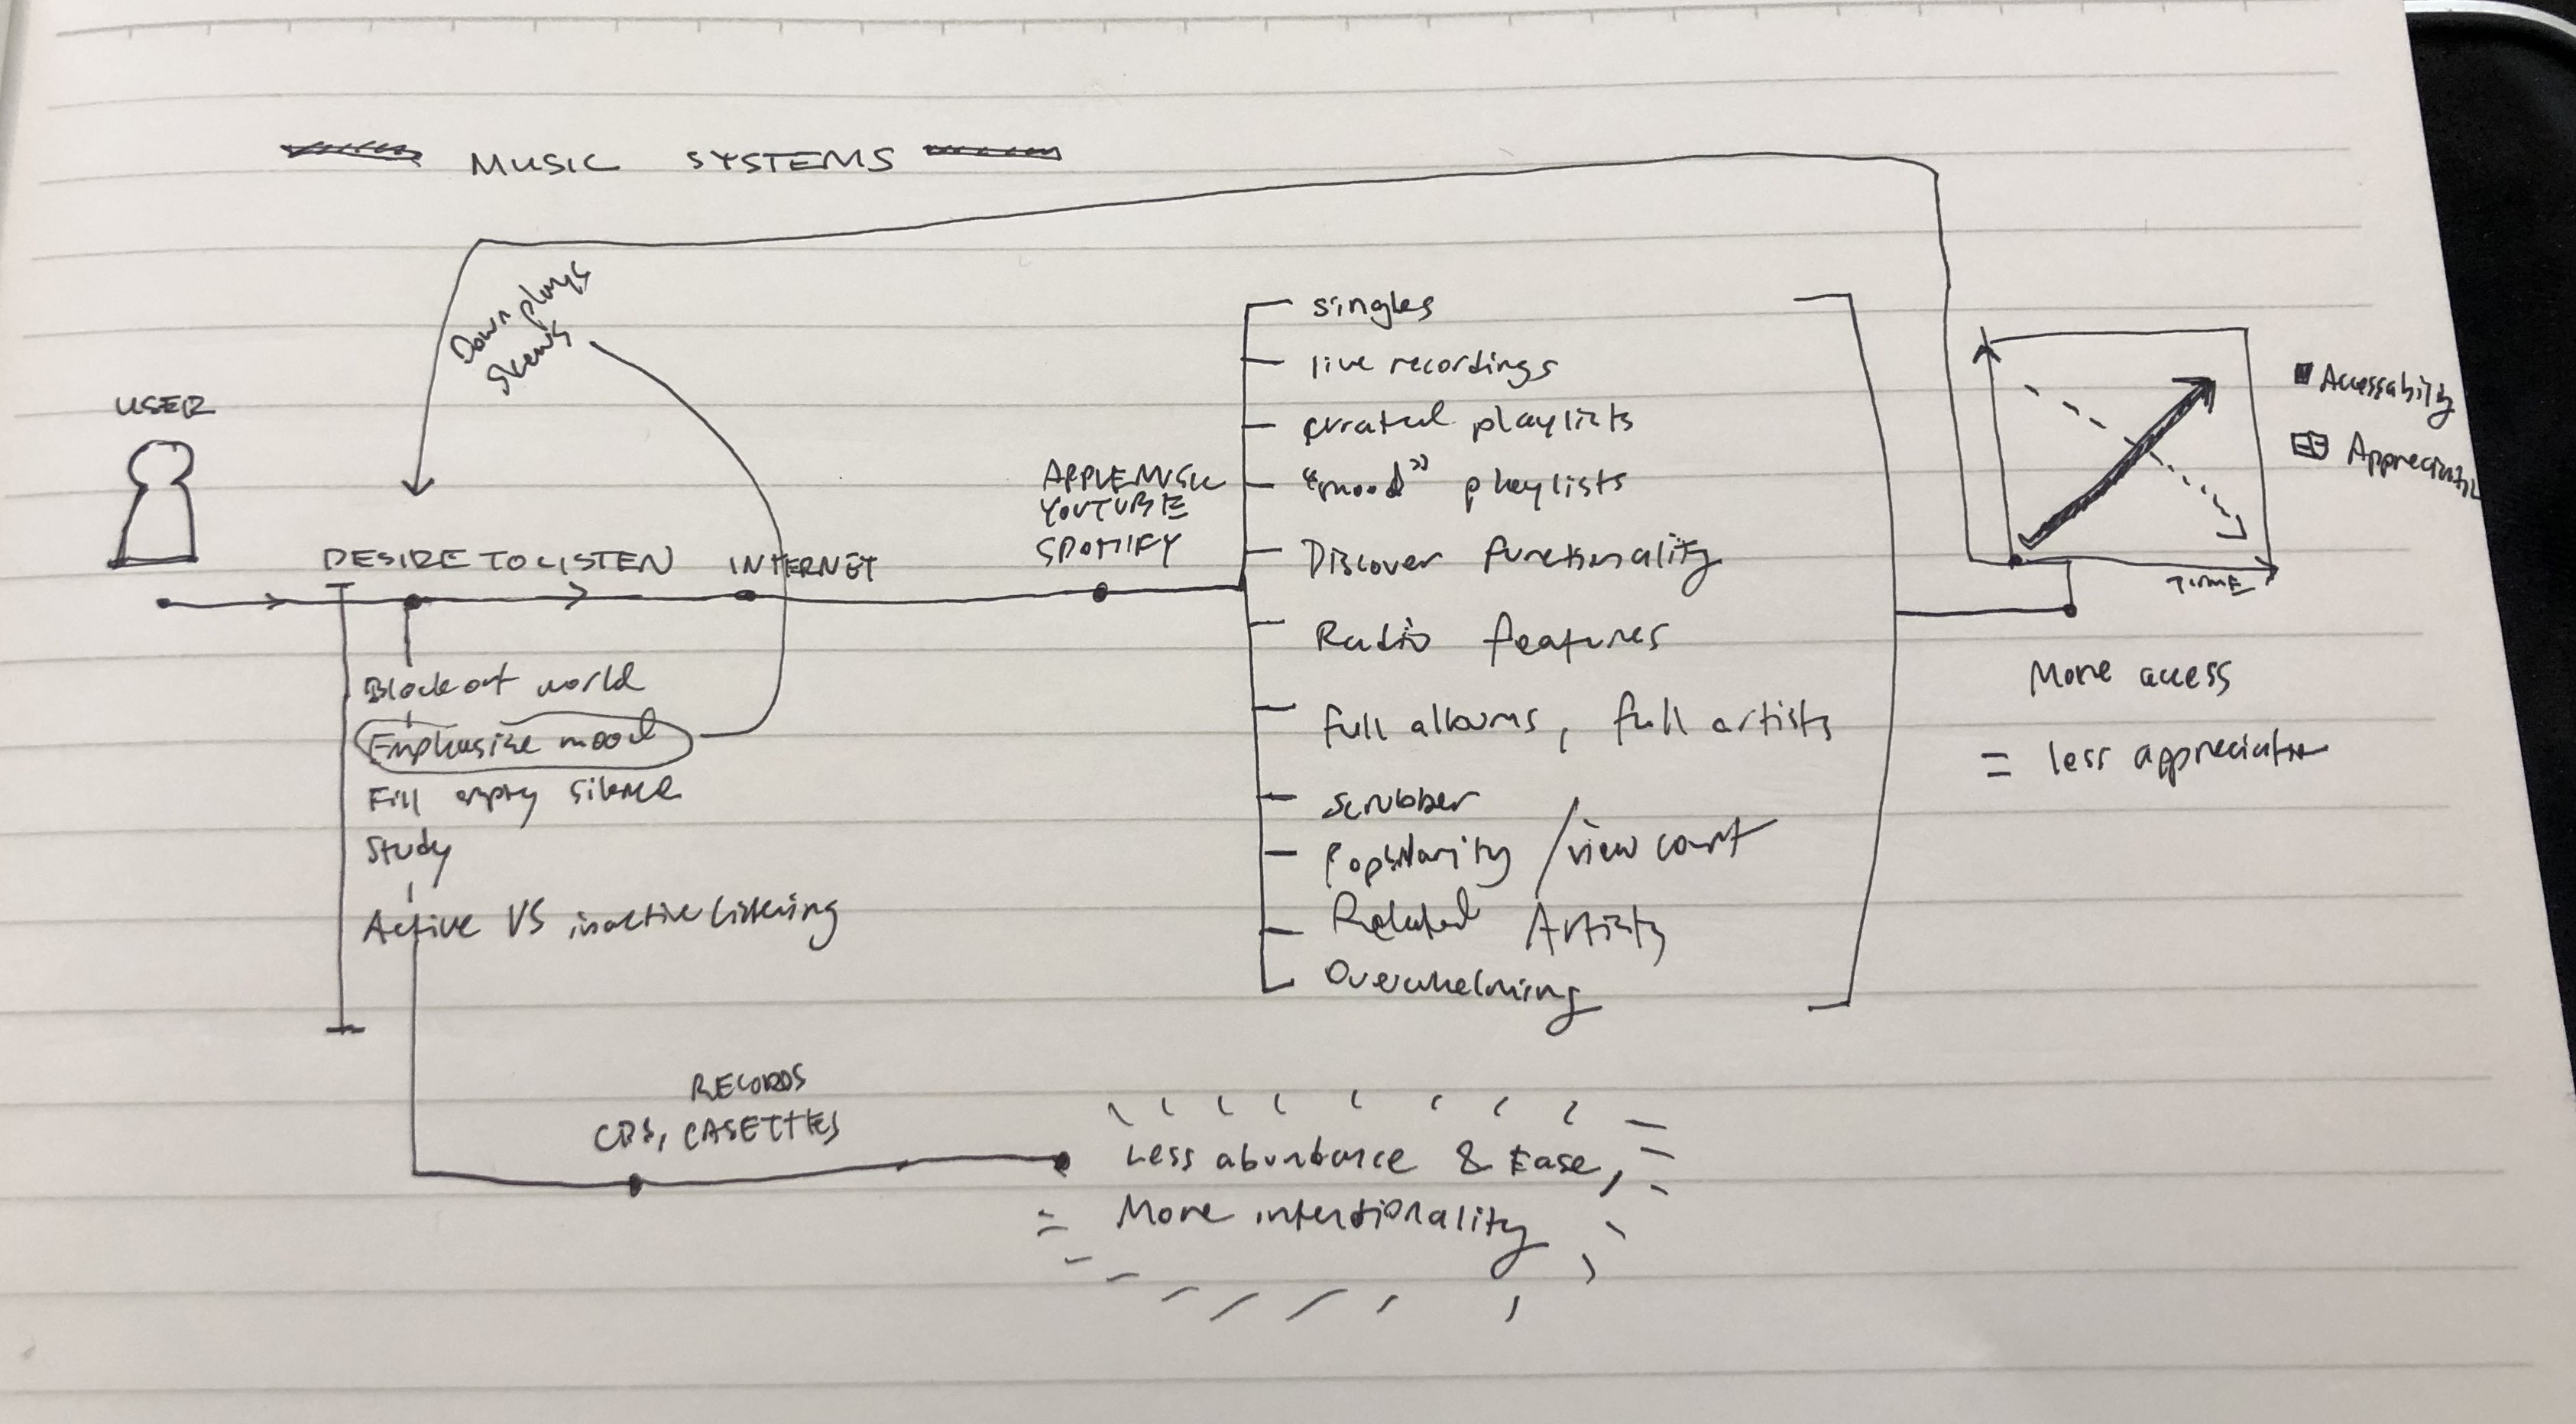 MUSIC SYSTEMS
Downplays
skews
USER
DESIRE TO LISTEN
INTERNET
APPLE MUSIC
YOUTUBE
SPOTIFY
Block out world
Emphasize mood
Fill empty silence
Study
Active VS inactive listening
singles
live recordings
curated playlists
"mood" playlists
Discover functionality
Radio features
full albums, full artists
scrubber
Popularity / view count
Related Artists
Overwhelming
Accessabilty
Appreciation
TIME
More access
= less appreciation
RECORDS
CDS, CASETTES
Less abundance & Ease,
More intentionality